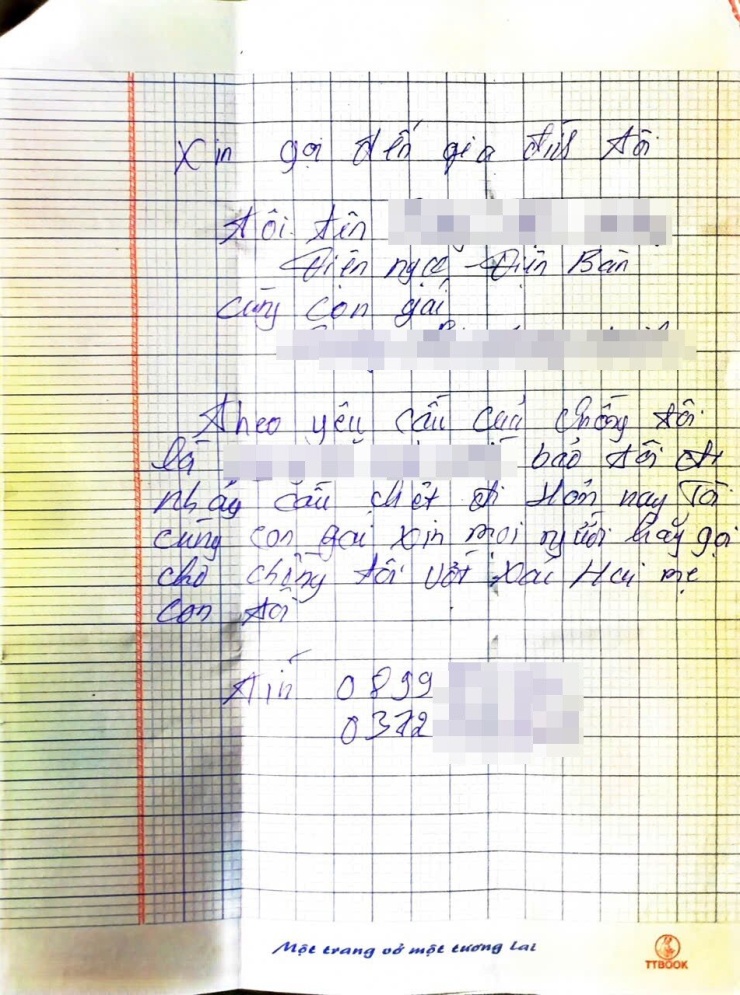 Xin gọi đến gia đình tôi
tôi tên
Điện ngọc - Điện Bàn
cùng con gái
Theo yêu cầu của chồng tôi
là bảo tôi đi
nhảy cầu chết đi Hôn nay Tôi
cùng con gai xin mọi người hãy gọi
cho chồng tôi vớt xác Hai mẹ
con tôi
0899
0372
Một trang vở một tương lai
TTBOOK